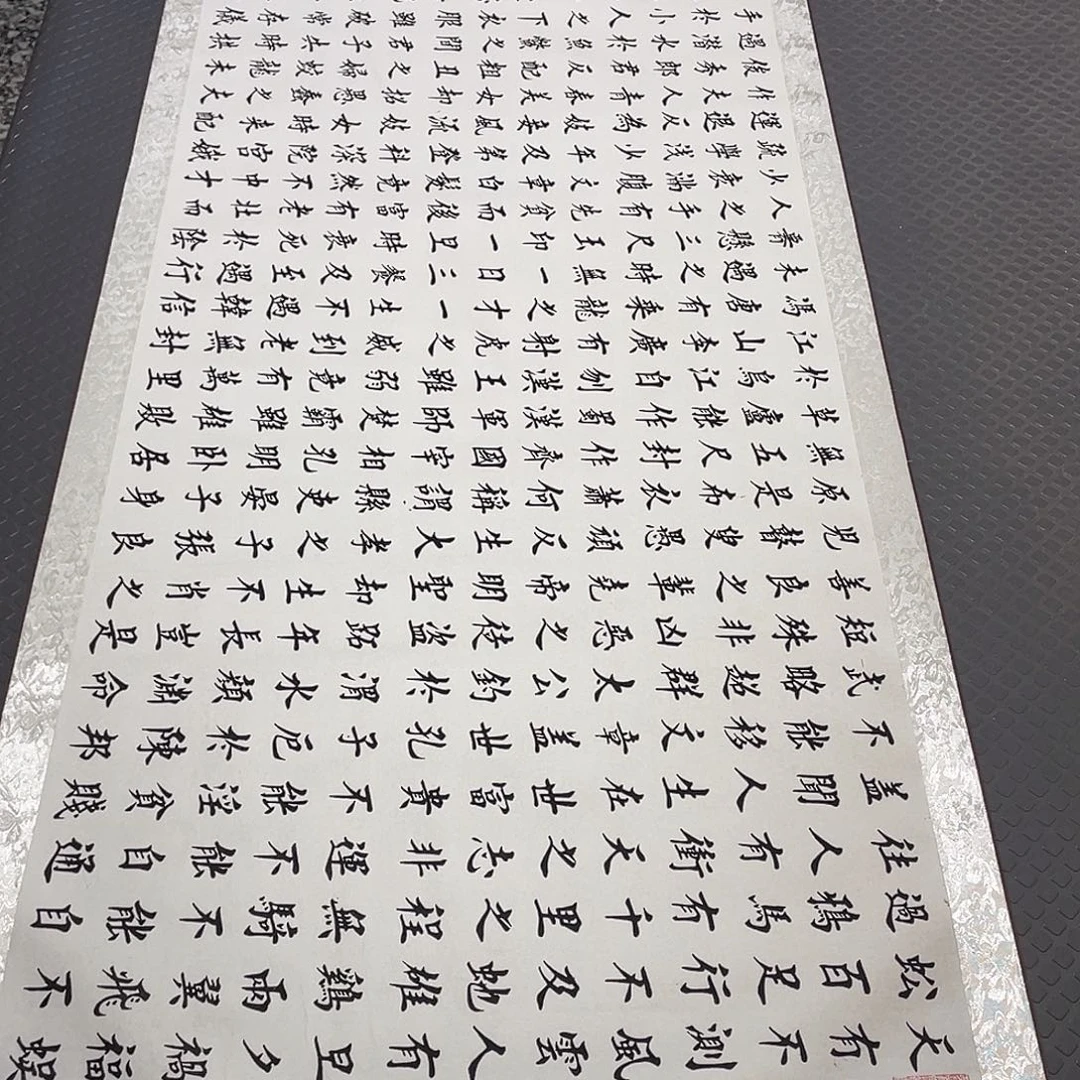 天有不測風雲人有旦夕禍福蜈
蚣百足行不及蛇雄鷄兩翼飛不
過鴉馬有千里之程無騎不能自
往人有衝天之志非運不能自通
盖聞人生在世富貴不能淫貧賤
不能移文章盖世孔子厄於陳邦
武略超群太公釣於渭水顏淵命
短殊非凶惡之徒盗路年長豈是
善良之輩堯帝明聖却生不肖之
兒瞽叟愚頑反生大孝之子張良
原是布衣蕭何稱謂縣吏晏子身
無五尺封作齊國宰相孔明卧居
草盧能作蜀漢軍師楚霸雖雄敗
於烏江自刎漢王雖弱竟有萬里
江山李廣有射虎之威到老無封
馮唐有乘龍之才一生不遇韓信
未遇之時無一日三餐及至遇行
齊懸三尺玉印一旦時衰死於陰
人之手有先貧而後富有老壯而
少衰滿腹文章白髮竟然不中才
疏學淺少年及第登科深院宮娥
運退反為妓妾風流妓女時來配
作夫人青春美女却招愚蠢之夫
俊秀郎君反配粗丑之婦蛟龍未
遇潛水於魚鱉之間君子失時拱
手於小人之下衣服雖破常存儀